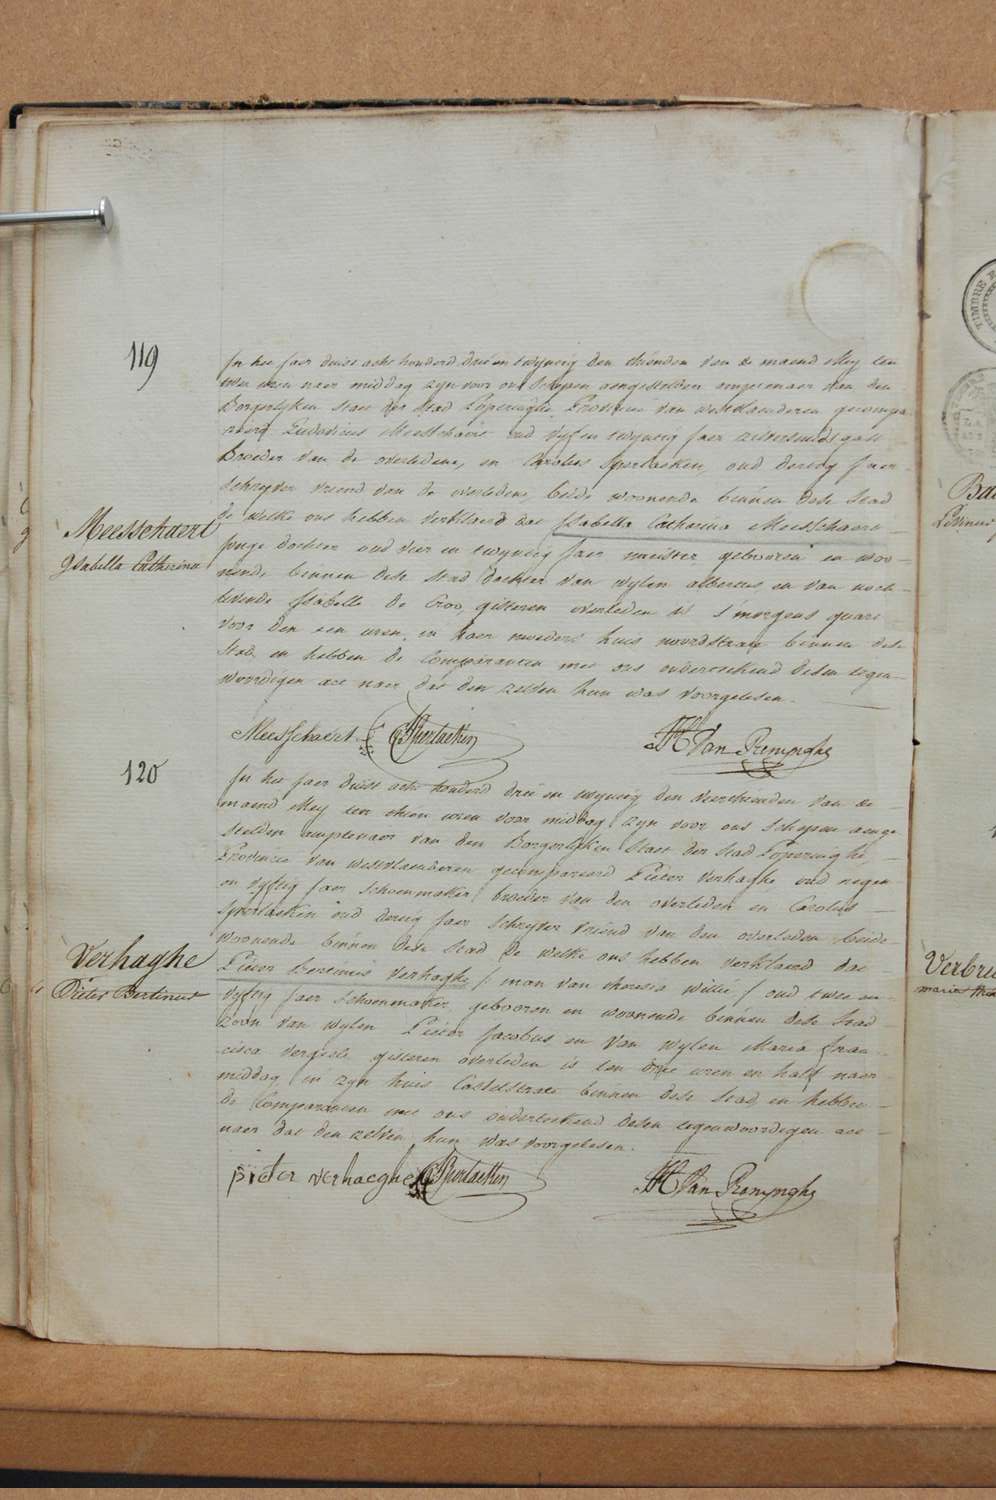 119
In het jaer duist acht honderd drie en twijntig den thienden van de maend Mey ten
twee uren naer middag zyn voor ons Schepen aengestelden amptenaer van den
Borgerlyken Staet der Stad Poperinghe, Provincie van westvlaenderen gecompa-
reerd Ludovicus Meesschaert oud vyf en twijntig jaer
Broeder van de overledene, en Carolus Sperlaeken, oud dertig jaer
schryver vriend van de overledene, beide woonende binnen dese Stad
de welke ons hebben verklaerd dat Isabella Catharina Meesschaert
Meesschaert
Isabella Catharina
jonge dochter oud vier en twijntig jaer gebooren en woo-
nende binnen dese Stad dochter van wylen albertus, en van noch
levende Isabelle De Croo, gisteren overleden is s'morgens quart
voor den een uren, in haer moeders huis noordstraet binnen dese
Stad, en hebben de Comparanten met ons onderteekend desen tegen-
woordigen act naer dat den zelven hun was voorgelesen.
Meesschaert C Sperlaeken
120
In het jaer duist acht honderd drie en twijntig den veerthienden van de
maend Mey ten thien uren voor middag zyn voor ons Schepen aenge
stelden amptenaer van den Borgerlyken Staet der Stad Poperinghe,
Provincie van westvlaenderen gecompareerd Pieter Verhaghe oud negen
en vyftig jaer Schoenmaker broeder van den overleden en Carolus
Sperlaeken oud dertig jaer Schryver vriend van den overleden beide
woonende binnen dese Stad de welke ons hebben verklaerd dat
Verhaghe
Pieter Bertinus
Pieter Bertinus Verhaghe / man van theresia Wille / oud twee en
vyftig jaer Schoenmaker, gebooren en woonende binnen dese Stad
zoon van wylen Pieter Jacobus en van wylen Maria Fran-
cisca gisteren overleden is ten drie uren en half naer
middag in zyn huis Casselstraet binnen dese Stad, en hebben
de Comparanten met ons onderteekend desen tegenwoordigen act
naer dat den zelven hun was voorgelesen.
pieter verhaeghe C Sperlaeken
TIMBRE